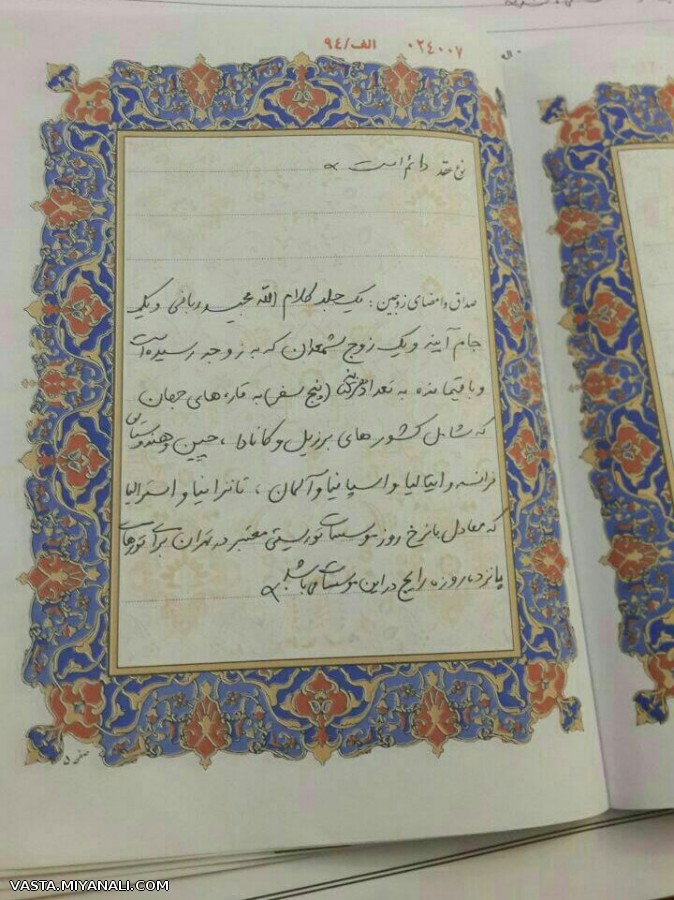 ۰۲٤۰۰۷ الف/۹٤
نوع عقد دائم است
صداق و امضای زوجین : یک جلد کلام الله مجید ربانی و یک
جام آینه و یک زوج شمعدان که به زوجه رسیده است
و باقیمانده به تعداد (پنج سفر) به قاره های جهان
که شامل کشور های برزیل و کانادا ، چین و هندوستان
فرانسه و ایتالیا و اسپانیا و آلمان ، تانزانیا و استرالیا
که معادل با نرخ روز موسسات توریستی معتبر در تهران برای تورهای
پانزده روزه رایج در این موسسات می باشد
صفحه ۵
VASTA.MIYANALI.COM